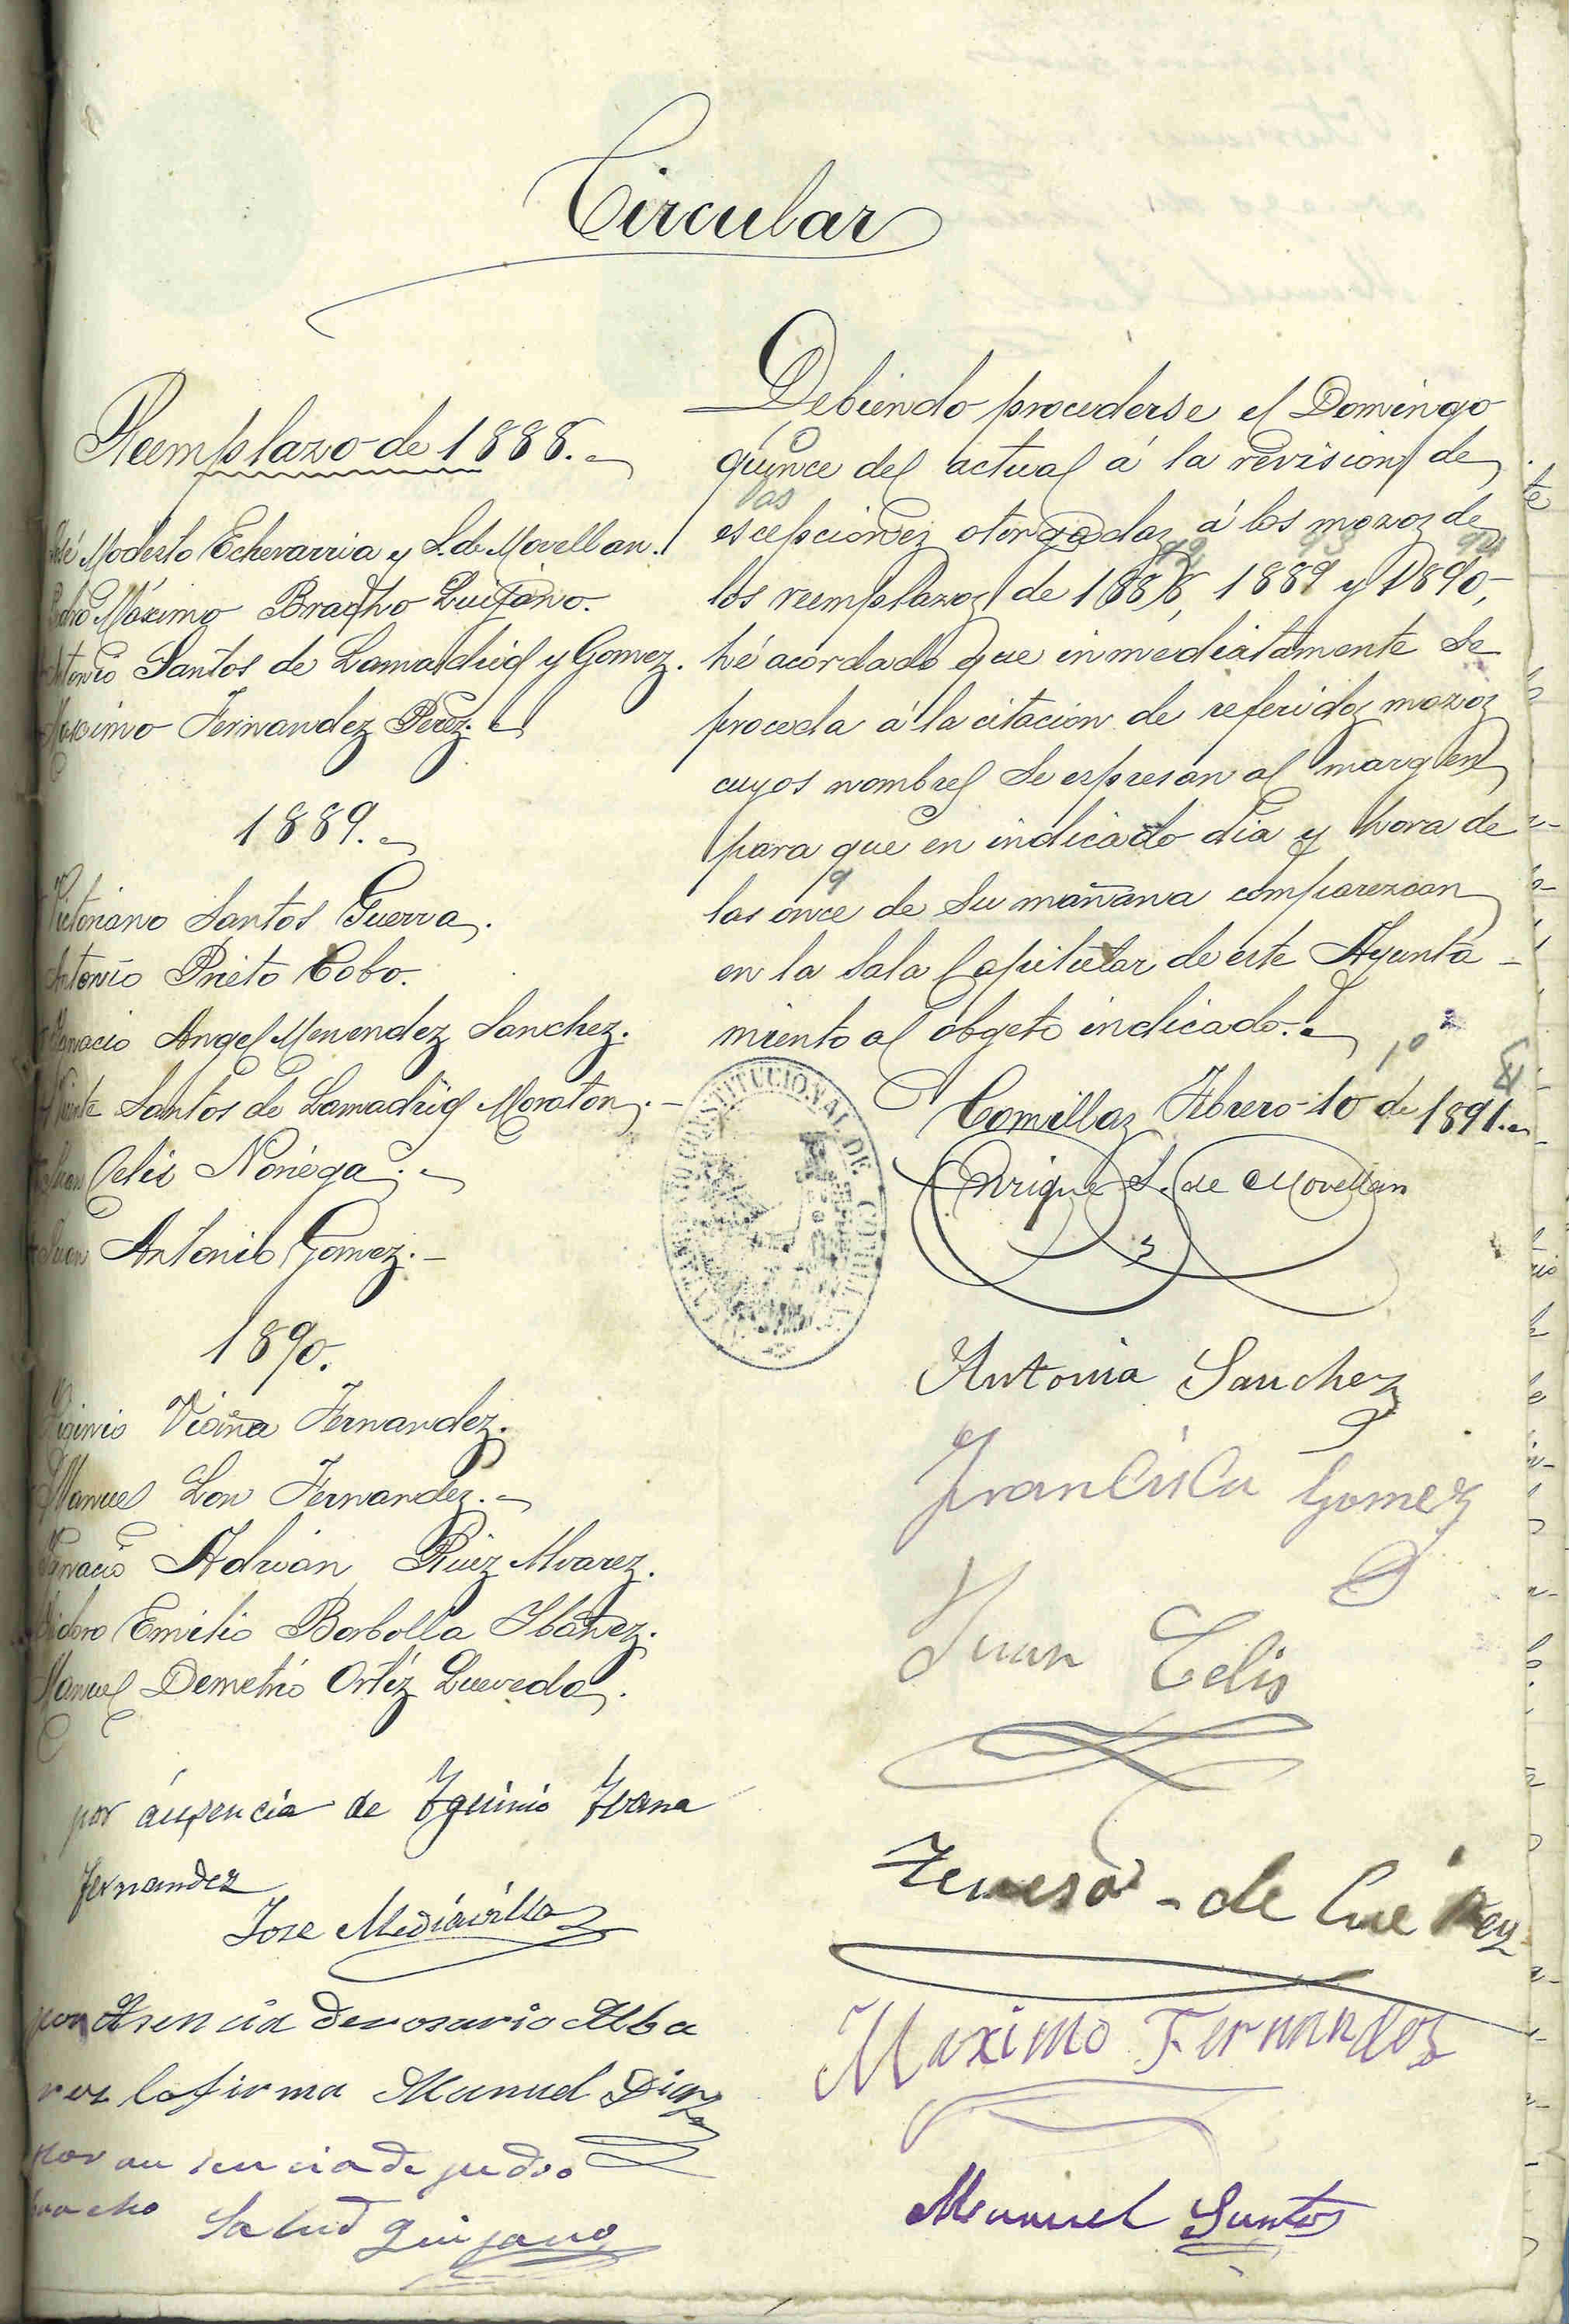 Circular
Reemplazo de 1888.
José Modesto Echevarria y S. de Movellan.
Pedro Máximo Bracho Quijano.
Antonio Santos de Lamadrid y Gomez.
Maximo Fernandez Perez.
1889.
Victoriano Santos Guerra.
Antonio Prieto Cobo.
Ignacio Angel Menendez Sanchez.
Vicente Santos de Lamadrid Moraton.
Juan Celis Noriega.
Juan Antonio Gomez.
1890.
Higinio Viaña Fernandez.
Manuel Lon Fernandez.
Ignacio Adrian Ruiz Alvarez.
Isidoro Emilio Borbolla Ibañez.
Manuel Demetrio Ortiz Quevedo.
por áusencia de Yginio
Fernandez
Jose Mediavilla
por Asencia de rosario Alba
rez lo firma Manuel Diaz
por ausencia de pedro
bracho Salud Quijano
Debiendo procederse el Domingo
quince del actual á la revision de
las
escepciones otorgadas á los mozos de
92 93 94
los reemplazos de 1888, 1889 y 1890,
hé acordado que inmediatamente se
proceda á la citacion de referidos mozos
cuyos nombres se espresan al margen
para que en indicado dia y hora de
9
las once de su mañana comparezcan
en la Sala Capitular de este Ayunta-
miento al obgeto indicado.
1º
Comillas Febrero 10 de 1891.
Enrique S. de Movellan
AYUNTAMIENTO CONSTITUCIONAL DE COMILLAS
Antonia Sanchez
Francisca Gomez
Juan Celis
Teresa de Cue
Maximo Fernandez
Manuel Santos